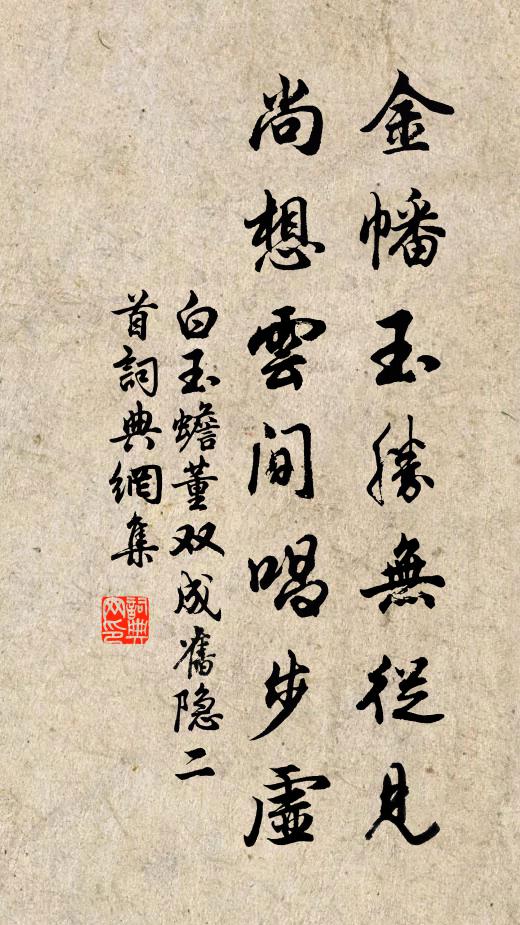 金幡玉勝無從見
尚想雲間唱步虛
白玉蟾董双成舊隐二
首詞典網集
詞典
网印